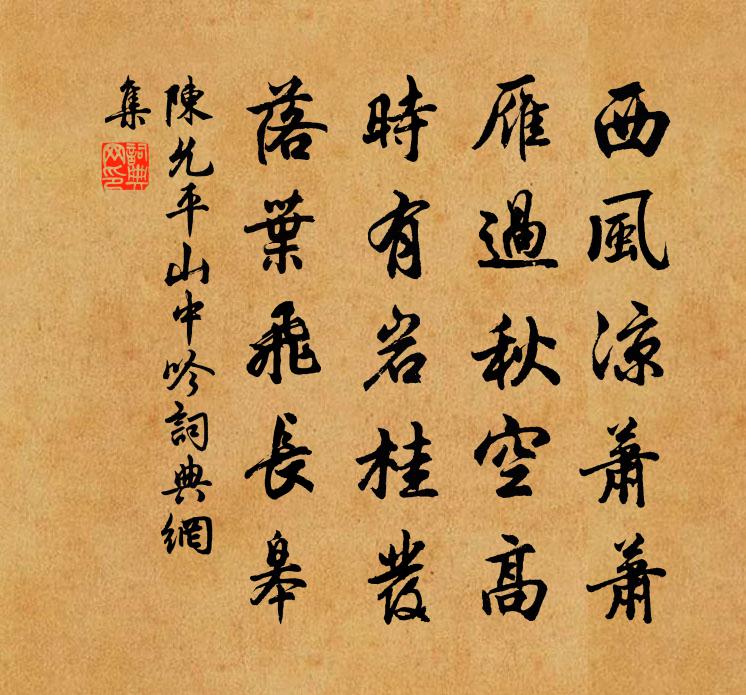 西風凉蕭蕭
雁過秋空高
時有岩桂發
落葉飛長皋
陳允平山中吟詞典網
集
詞典網印